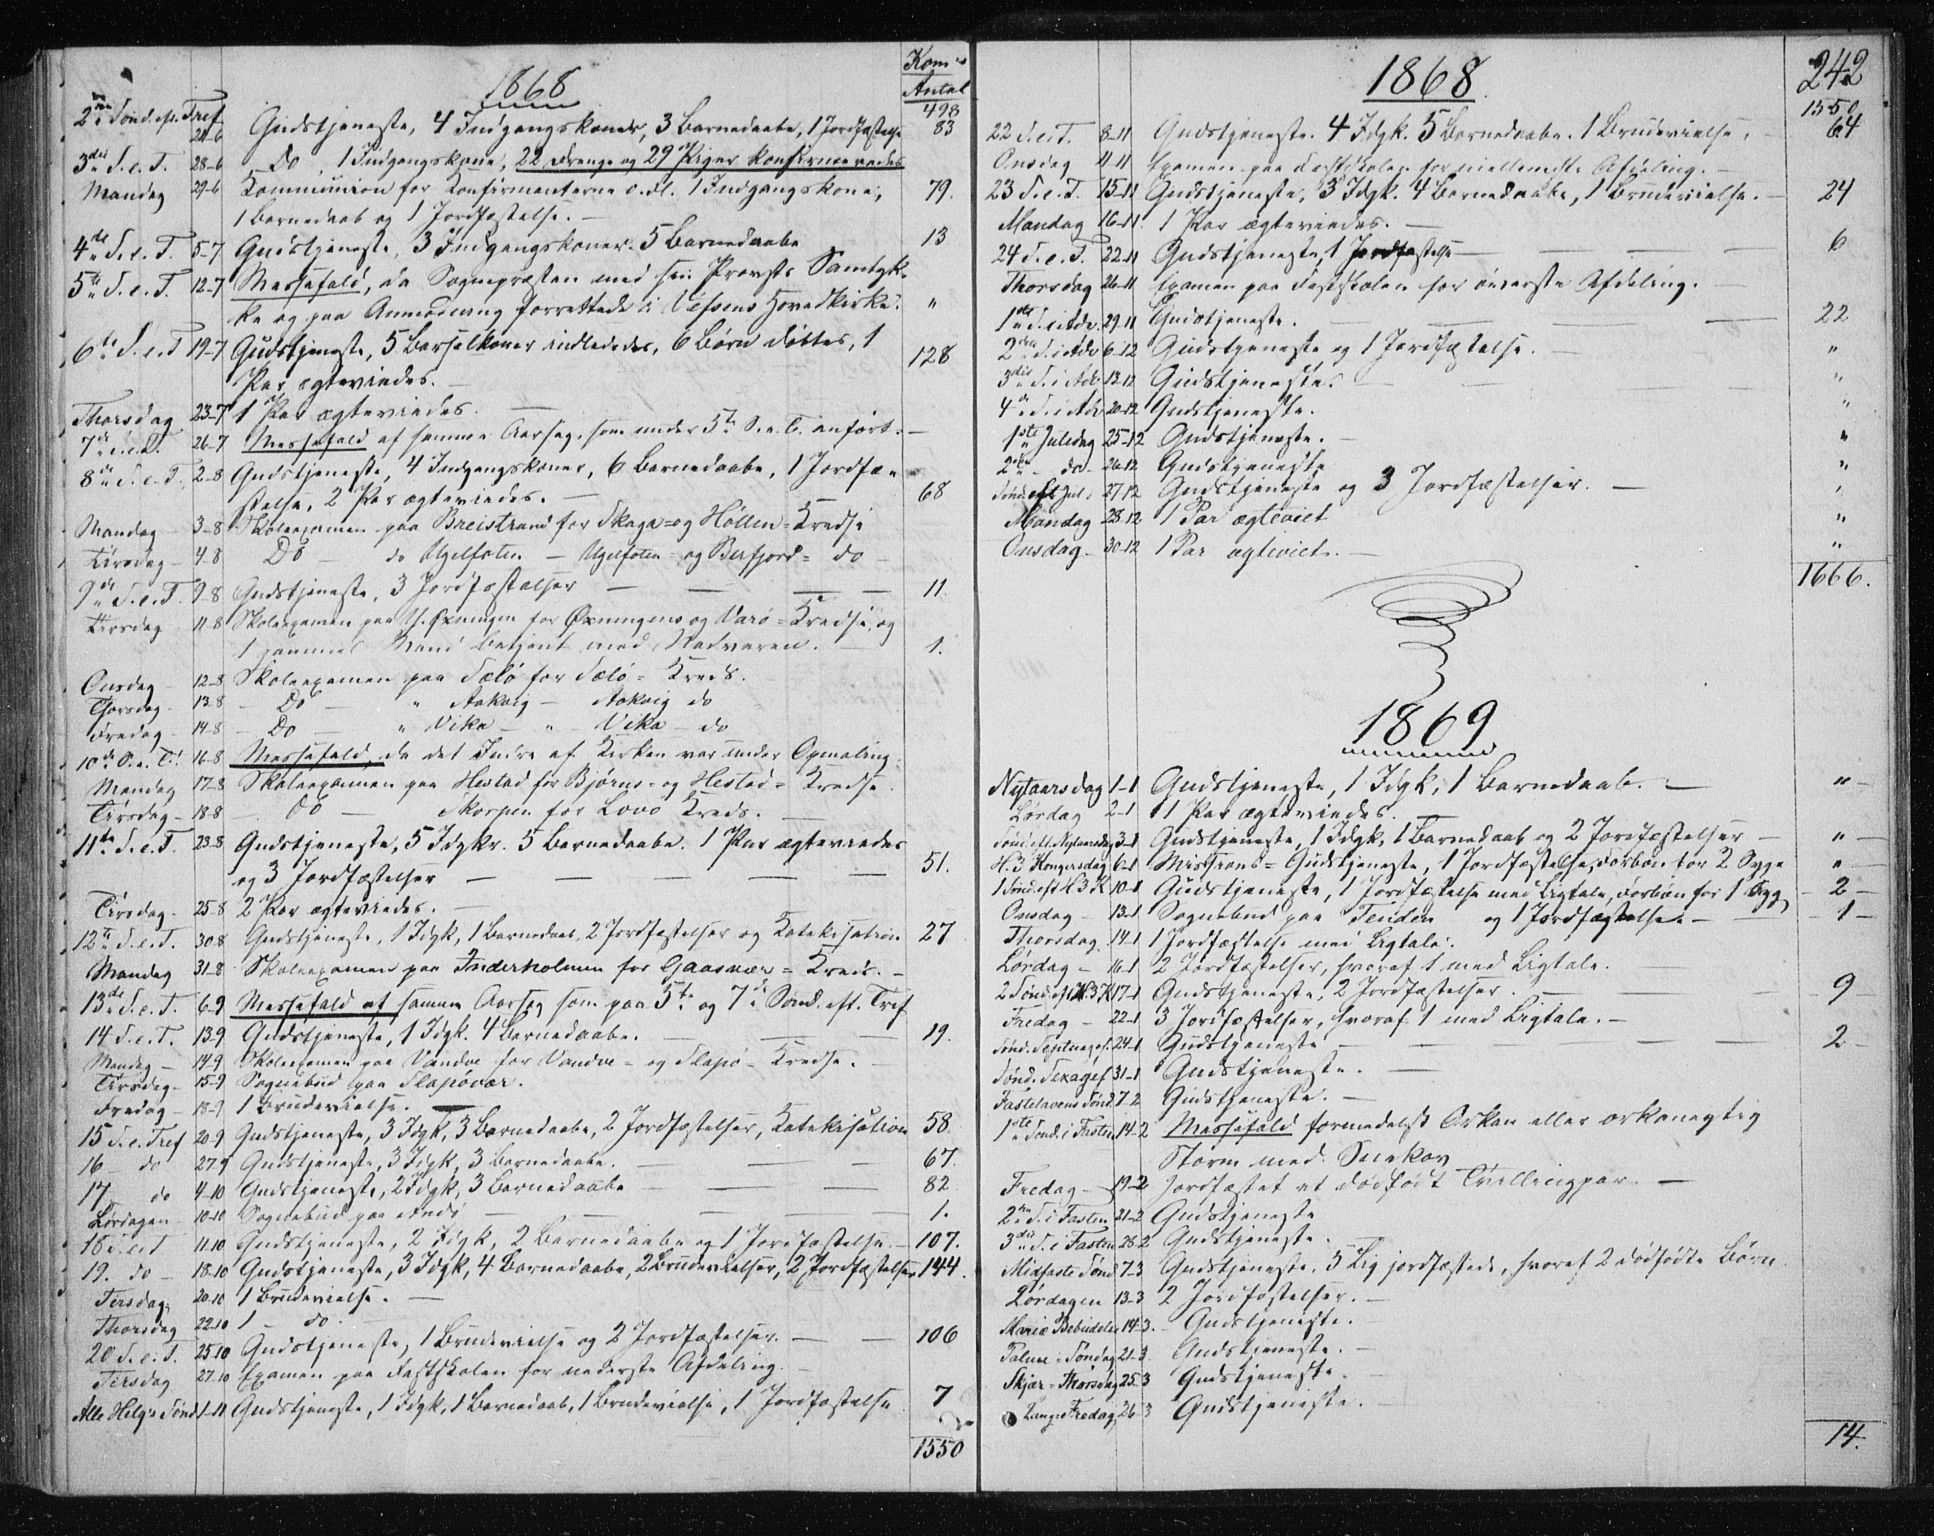 1868
Kom's
Antal
498
2den Sønd. eft. Tref. 21-6 Gudstjeneste, 4 Indgangskoner, 3 Barnedaabe, 1 Jordfæstelse 83
3die S. e. T. 28-6 Do 1 Indgangskone, 22 Drenge og 29 Piger konfirmeredes
Mandag 29-6 Kommunion for Konfirmanterne o. Fl. 1 Indgangskone, 79.
1 Barnedaab og 1 Jordfæstelse. —
4de S. e. T. 5-7 Gudstjeneste, 3 Indgangskoner. 5 Barnedaabe 13
5te S. e. T. 12-7 Messefald, da Sognepræsten med Hr. Provsts Samtyk-
ke og paa Anmodning forrettede i Vefsens Hovedkirke. "
6te S. e. T 19-7 Gudstjeneste, 5 Barselkoner indlededes, 6 Børn døbtes, 1 128
Par ægteviedes. —
Thorsdag 23-7 1 Par ægteviedes. —
7de S. e. T. 26-7 Messefald af samme Aarsag, som under 5te S. e. T. anført. —
8de S. e. T. 2-8 Gudstjeneste, 4 Indgangskoner, 6 Barnedaabe, 1 Jordfæ-
stelse, 2 Par ægteviedes. — 68
Mandag 3-8 Skoleexamen paa Breistrand for Skaga- og Høllen-Kredse
Tirsdag 4-8 Do — do Ugelfoten — Ugelfoten- og Berfjord- do —
9de S. e. T. 9-8 Gudstjeneste, 3 Jordfæstelser — — — — 11.
Tirsdag 11-8 Skoleexamen paa Y. Øxningen for Øxningens og Varø-Kredse, og
1 gammel Mand betjent med Nadveren. — 1.
Onsdag 12-8 Skoleexamen paa Sælø for Sælø-Kreds.
Thorsdag 13-8 — Do — " Aakvig — Aakvig do
Fredag 14-8 — Do — " Vika — " — Vika — do
10de S. e. T. 16-8 Messefald, da det Indre af Kirken var under Opmaling.
Mandag 17-8 Skoleexamen paa Hestad for Bjørns- og Hestad-Kredse.
Tirsdag 18-8 — Do — Skorpen for Lovø Kreds. —
11te S. e. T. 23-8 Gudstjeneste, 5 Idgkr. 5 Barnedaabe. 1 Par ægteviedes
og 3 Jordfæstelser — — — — — 51.
Tirsdag 25-8 2 Par ægteviedes. —
12te S. e. T. 30-8 Gudstjeneste, 1 Idgk, 1 Barnedaab, 2 Jordfæstelser og Katekisation 27
Mandag 31-8 Skoleexamen paa Inderholmen for Gaasvær-Kreds. —
13de S. e. T. 6-9 Messefald af samme Aarsag som paa 5te og 7de Sønd. eft. Tref
14 S. e. T. 13-9 Gudstjeneste, 1 Idgk. 4 Barnedaabe. — — — 19.
Mandag — 14-9 Skoleexamen paa Vandve for Vandve- og Slapø-Kredse. —
Tirsdag — 15-9 Sognebud paa Slapøvær.
Fredag — 18-9 1 Brudevielse. —
15 S. e. Tref 20-9 Gudstjeneste, 3 Idgk, 3 Barnedaabe, 2 Jordfæstelser, Katekisation 58
16 — do 27-9 Gudstjeneste, 3 Idgk, 3 Barnedaabe. — — — 67.
17 do 4-10 Gudstjeneste, 2 Idgk, 3 Barnedaabe — — — 82
Lørdagen 10-10 Sognebud paa — — — — 1.
18 S. e. T 11-10 Gudstjeneste, 2 Idgk, 2 Barnedaabe og 1 Jordfæstelse. — 107.
19. do — 18-10 Gudstjeneste, 3 Idgk, 4 Barnedaabe, 2 Brudevielser, 2 Jordfæstelser 144.
Tirsdag 20-10 1 Brudevielse. —
Thorsdag 22-10 1 — do. —
20 S. e. T. 25-10 Gudstjeneste, 1 Brudevielse og 2 Jordfæstelser. — — 106
Tirsdag 27-10 Examen paa Fastskolen for nederste Afdeling. —
Alle Helg's Sønd 1-11 Gudstjeneste, 1 Idgk, 1 Barnedaab, 1 Brudevielse, 1 Jordfæstelse 7
1550
1868.
242
1550
22 S. e. T. 8-11 Gudstjeneste. 4 Idgk. 5 Barnedaabe. 1 Brudevielse. — 64
Onsdag 11-11 Examen paa Fastskolen for mellemste Afdeling. —
23 S. e. T. 15-11 Gudstjeneste, 3 Idgk. 4 Barnedaabe, 1 Brudevielse. — 24
Mandag 16-11 1 Par ægteviedes. —
24 S. e. T. 22-11 Gudstjeneste, 1 Jordfæstelse — — — — 6
Thorsdag 26-11 Examen paa Fastskolen for øverste Afdeling. —
1ste S. i Adv. 29-11 Gudstjeneste. — — — — 22
2den S. i Adv 6-12 Gudstjeneste og 1 Jordfæstelse. — "
3die S. i Adv 13-12 Gudstjeneste — — "
4de S. i Adv 20-12 Gudstjeneste. "
1ste Juledag 25-12 Gudstjeneste. — "
2den — do — 26-12 Gudstjeneste "
Sønd. eft Jul. 27-12 Gudstjeneste og 3 Jordfæstelser. — "
Mandag 28-12 1 Par ægteviet "
Onsdag — 30-12 1 Par ægteviet. — "
1666.
1869
Nytaarsdag 1-1 Gudstjeneste, 1 Idgk, 1 Barnedaab. — " —
Lørdag 2-1 1 Par ægteviedes. —
Sønd eft. Nytaarsdag 3-1 Gudstjeneste, 1 Idgk, 1 Barnedaab og 2 Jordfæstelser — " —
H. 3 Kongersdag 6-1 Missions-Gudstjeneste, 1 Jordfæstelse, Forbøn for 2 Syge " —
1 Sønd. eft H 3 K 10-1 Gudstjeneste, 1 Jordfæstelse med Ligtale, Forbøn for 1 Syg — 2 —
Onsdag — 13-1 Sognebud paa Tenden og 1 Jordfæstelse. — — 1 —
Thorsdag 14-1 1 Jordfæstelse med Ligtale.
Lørdag — 16-1 2 Jordfæstelser, hvoraf 1 med Ligtale. —
2 Sønd. eft H. 3 K 17-1 Gudstjeneste, 2 Jordfæstelser. — — — 9 —
Fredag — 22-1 3 Jordfæstelser, hvoraf 1 med Ligtale. —
Sønd. Septuages. 24-1 Gudstjeneste — — — — 2 —
Sønd. Sexagef 31-1 Gudstjeneste. —
Fastelavens Sønd. 7-2 Gudstjeneste. —
1ste Sønd. i Fasten 14-2 Messefald formedelst Orkan eller orkanagtig
Storm med Snekov
Fredag — 19-2 Jordfæstet et dødfødt Tvillingpar. —
2den S. i Fasten 21-2 Gudstjeneste
3die S. i Fasten 28-2 Gudstjeneste.
Midfaste Sønd 7-3 Gudstjeneste. 3 Lig jordfæstede, hvoraf 2 dødfødte Børn.
Lørdagen 13-3 2 Jordfæstelser. —
Mariæ Bebudelse 14-3. — Gudstjeneste. —
Palme-Søndag 21-3 Gudstjeneste. —
Skjær-Thorsdag 25-3 Gudstjeneste. —
Langs Fredag 26-3 Gudstjeneste. —
14.